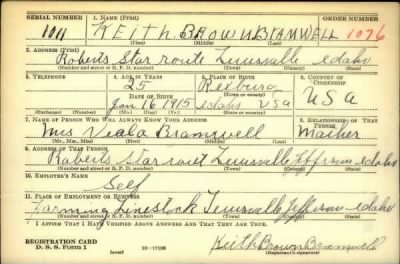 SERIAL NUMBER 1. NAME (Print) ORDER NUMBER
1011 KEITH BROWN BRAMWELL 1076
(First) (Middle) (Last)
2. ADDRESS (Print)
Roberts Star route Idaho
(Number and street or R. F. D. number) (Town) (County) (State)
3. TELEPHONE 4. AGE IN YEARS 5. PLACE OF BIRTH 6. COUNTRY OF CITIZENSHIP
25 Rexburg
DATE OF BIRTH (Town or county) USA
Jan 16 1915 Idaho USA
(Exchange) (No.) (Mo.) (Day) (Yr.) (State or country)
7. NAME OF PERSON WHO WILL ALWAYS KNOW YOUR ADDRESS 8. RELATIONSHIP OF THAT PERSON
Mrs Bramwell Mother
(Mr., Mrs., Miss) (First) (Middle) (Last)
9. ADDRESS OF THAT PERSON
Roberts Star rout Idaho
(Number and street or R. F. D. number) (Town) (County) (State)
10. EMPLOYER'S NAME
Self
11. PLACE OF EMPLOYMENT OR BUSINESS
Farming Livestock Idaho
(Number and street or R. F. D. number) (Town) (County) (State)
I AFFIRM THAT I HAVE VERIFIED ABOVE ANSWERS AND THAT THEY ARE TRUE.
REGISTRATION CARD
D. S. S. Form 1 Keith Brown Bramwell
(Registrant's signature)